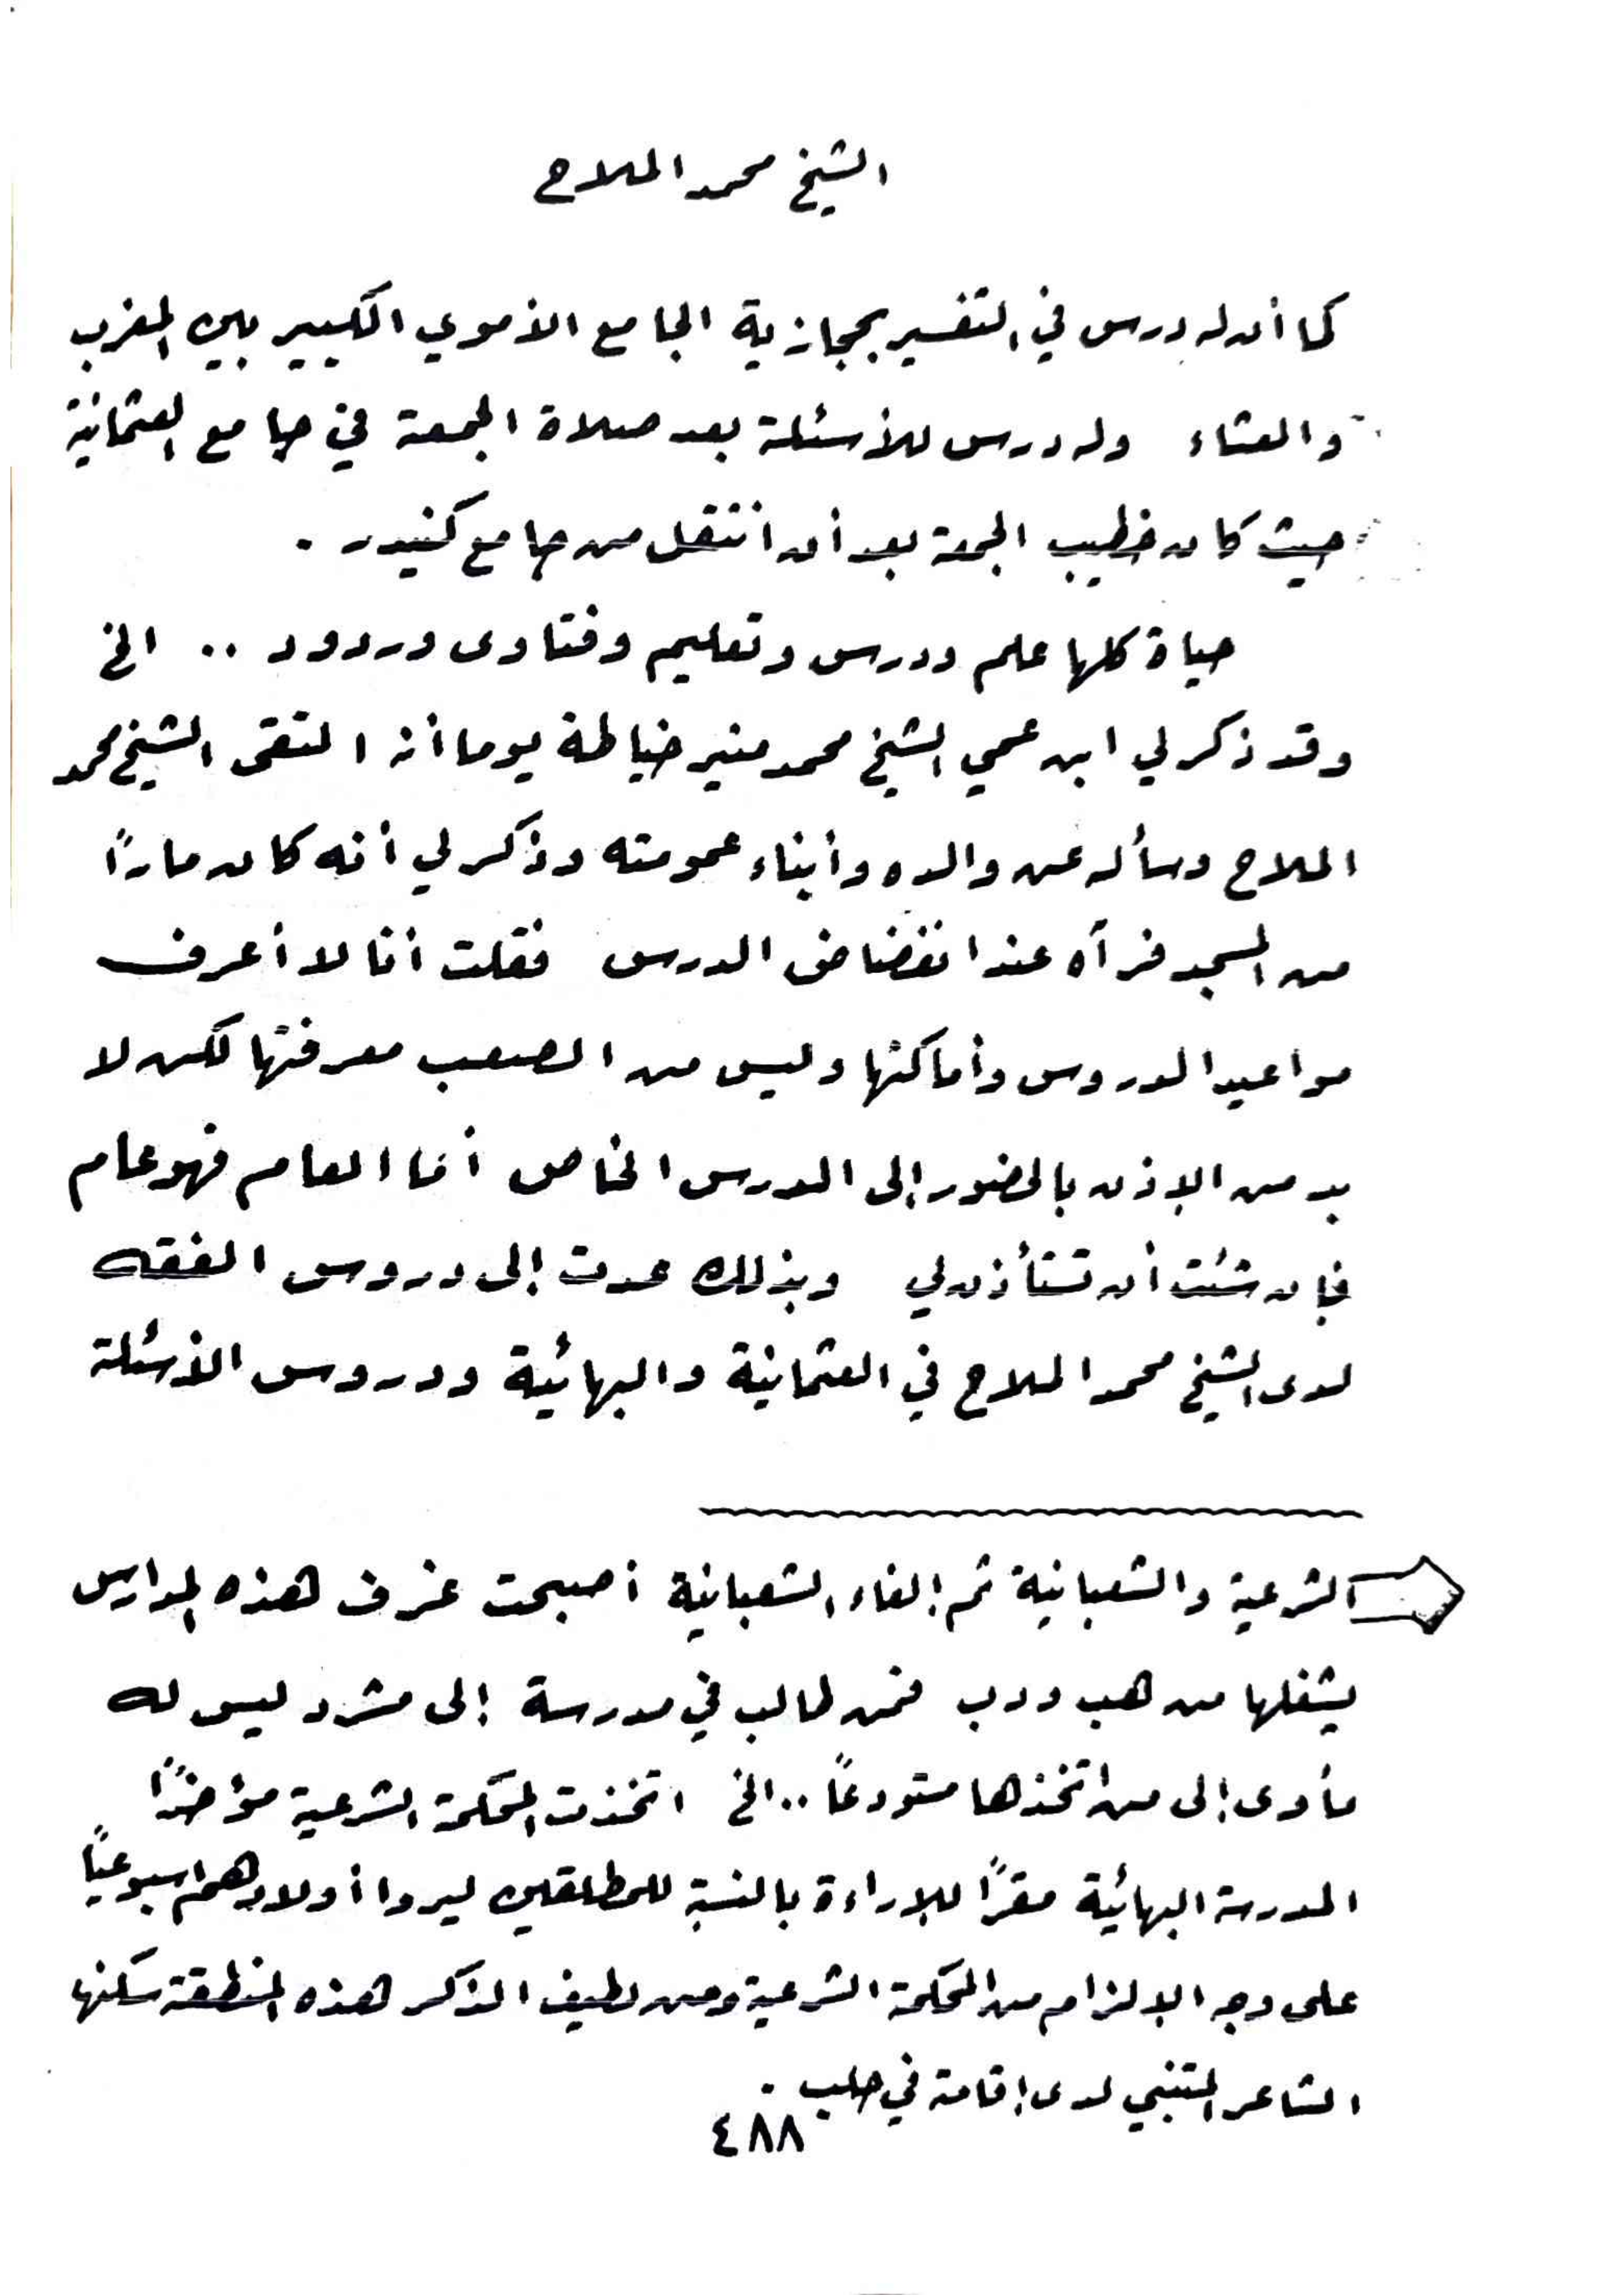 الشيخ محمد الملاح
كما أن له درس في التفسير بحجازية الجامع الأموي الكبير بين المغرب
والعشاء وله درس للأسئلة بعد صلاة الجمعة في جامع العثمانية
حيث كان خطيب الجمعة بعد أن انتقل من جامع
حياة كلها علم ودرس وتعليم وفتاوى وردود .. الخ
وقد ذكر لي ابن عمي الشيخ محمد منير خياطة يوما أنه التقى الشيخ محمد
الملاح وسأله عن والده وأبناء عمومته وذكر لي أنه كان مارًا
من المسجد فرآه عند انفضاض الدرس فقلت أنا لا أعرف
مواعيد الدروس وأماكنها وليس من الصعب معرفتها لكن لا
بد من الإذن بالحضور إلى الدرس الخاص أما العام فهو عام
فإن شئت أن تستأذن لي وبذلك عدت إلى دروس الفقه
لدى الشيخ محمد الملاح في العثمانية والبهائية ودروس الأسئلة
الشرعية والشعبانية ثم إلغاء الشعبانية أصبحت غرف هذه المدارس
يشغلها من هب ودب فمن طالب في مدرسة إلى مشرد ليس له
مأوى إلى من اتخذها مستودعًا .. الخ اتخذت المحكمة الشرعية مؤخرًا
المدرسة البهائية مقرًا للإراءة بالنسبة للمطلقين ليروا أولادهم اسبوعيًا
على وجه الإلزام من المحكمة الشرعية ومن لطيف الذكر هذه المنطقة سكنها
الشاعر المتنبي لدى إقامته في حلب .
٤٨٨